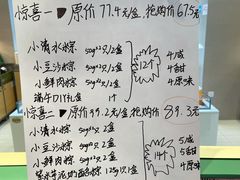 惊喜一 原价77.4元/盒 抢购价67.5
小清水粽 50g*2只/2盒
小豆沙粽 50g*2只/2盒
小鲜肉粽 50g*2只/2盒
端午DIY礼盒 1个
12个
4/咸
4/甜
4/原味
惊喜二 原价99.2元/盒 抢购价89.3元
小清水粽 50g*2只 2盒
小豆沙粽 50g*2只 2盒
小鲜肉粽 50g*2只 2盒
紫米芋泥奶酪粽 125g*1只 2盒
14个
5/咸
5/甜
4/原味